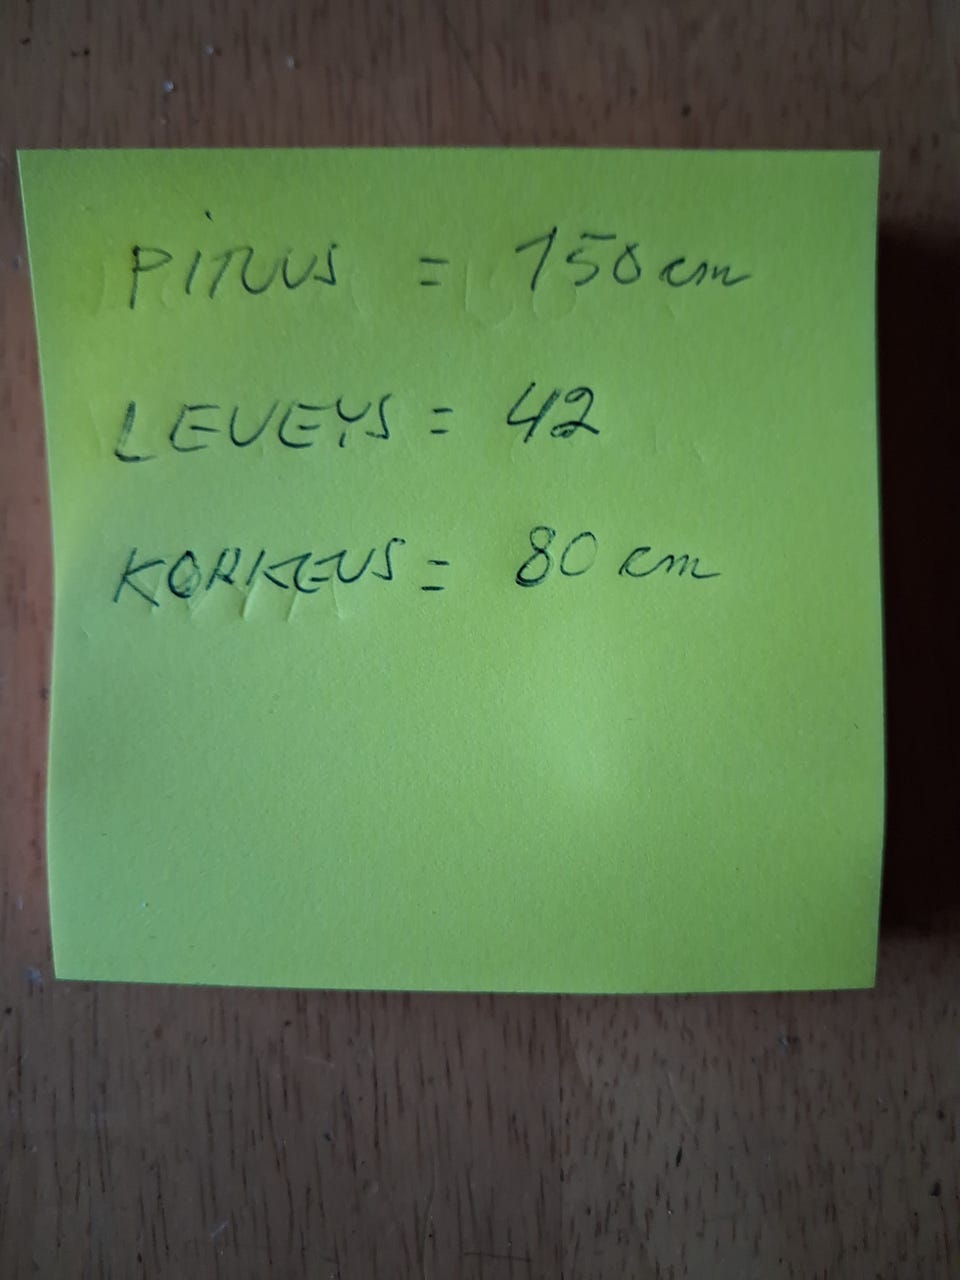 PITUUS = 150 cm
LEVEYS = 42
KORKEUS = 80 cm